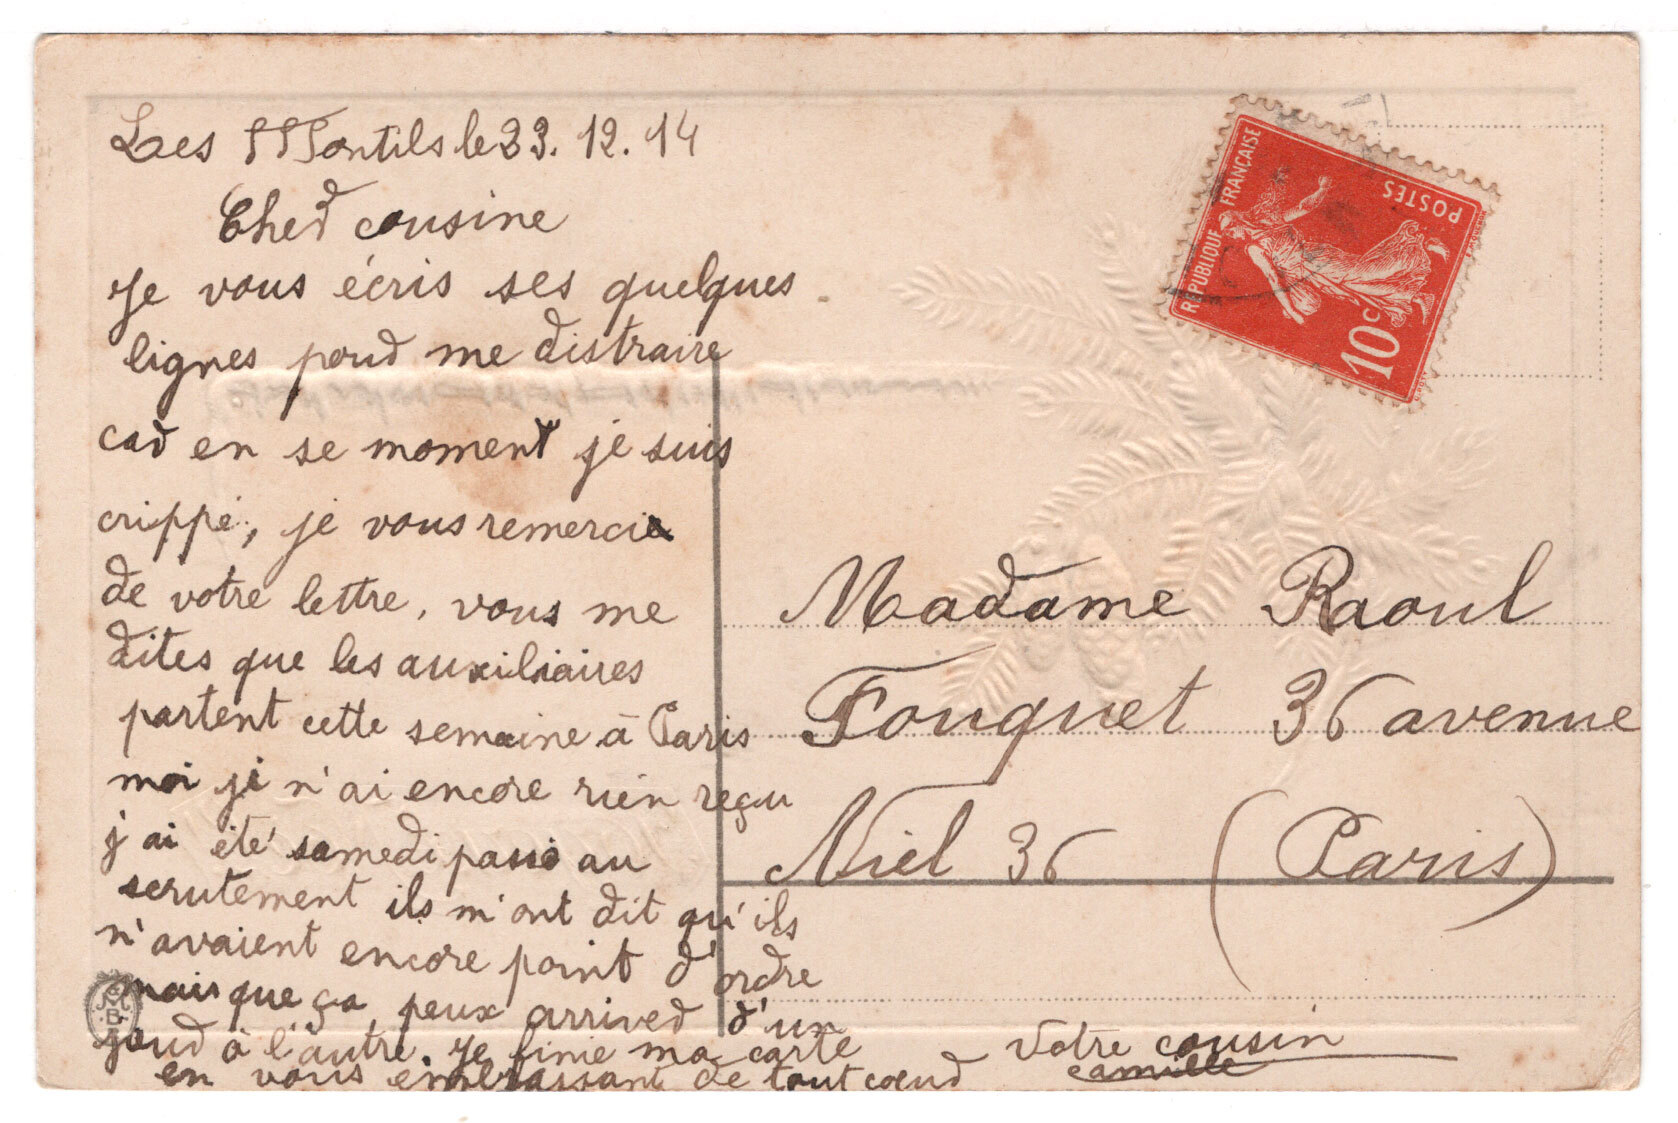 Les Montils le 23. 12. 14
Cher cousine
Je vous écris ses quelques
lignes pour me distraire
car en se moment je suis
crippé, je vous remercie
de votre lettre, vous me
dites que les auxiliaires
partent cette semaine à Paris
moi je n'ai encore rien reçu
j'ai été samedi passé au
scrutement ils m'ont dit qu'ils
n'avaient encore point d'ordre
mais que ça peux arriver d'un
jour à l'autre. Je finie ma carte
en vous embrassant de tout cœur
Votre cousin
Camille
RÉPUBLIQUE FRANÇAISE
POSTES
10c
Madame Raoul
Fouquet 36 avenue
Niel 36 (Paris)